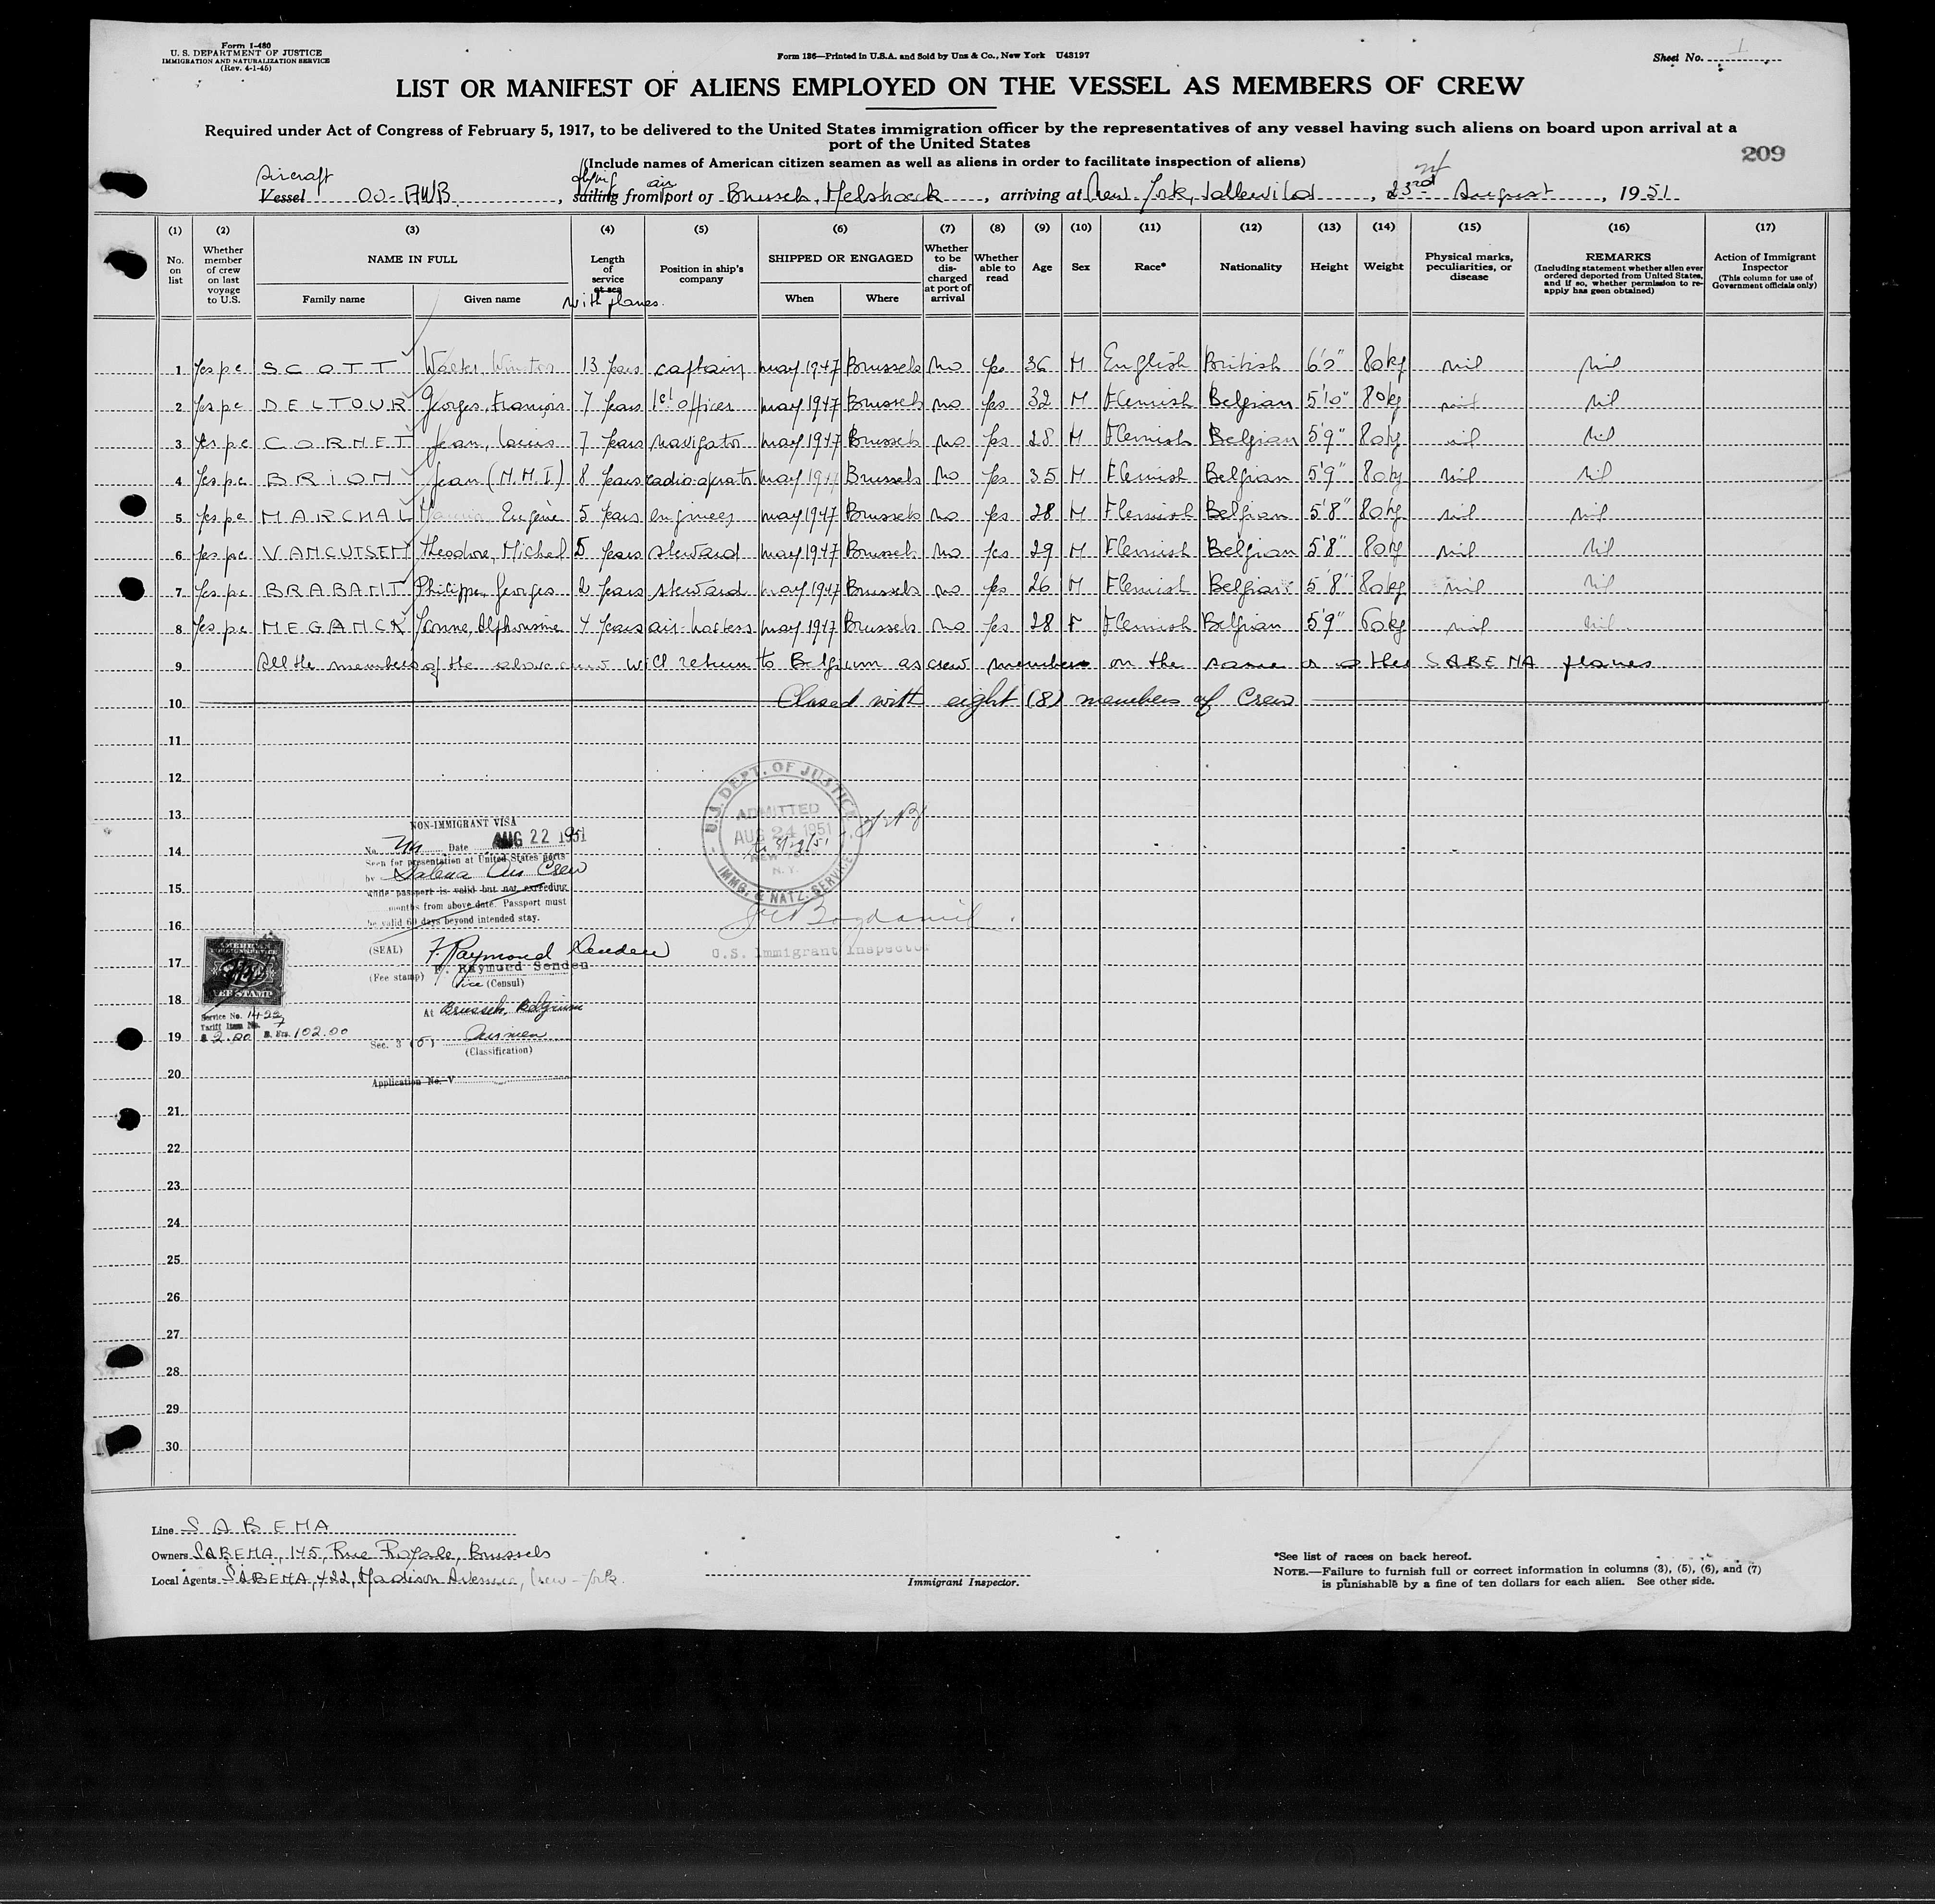 Form I-480
U. S. DEPARTMENT OF JUSTICE
IMMIGRATION AND NATURALIZATION SERVICE
(Rev. 4-1-45)
Form 136—Printed in U.S.A. and Sold by Unz & Co., New York U43197
Sheet No. 1
LIST OR MANIFEST OF ALIENS EMPLOYED ON THE VESSEL AS MEMBERS OF CREW
Required under Act of Congress of February 5, 1917, to be delivered to the United States immigration officer by the representatives of any vessel having such aliens on board upon arrival at a
port of the United States
209
(Include names of American citizen seamen as well as aliens in order to facilitate inspection of aliens)
Aircraft flying air
Vessel OO-AWB, sailing from port of Brussels, Melsbroek, arriving at New York, Idlewild, 23rd August, 1951
(1) (2) (3) (4) (5) (6) (7) (8) (9) (10) (11) (12) (13) (14) (15) (16) (17)
No. on list
Whether member of crew on last voyage to U.S.
NAME IN FULL
Family name Given name
Length of service at sea
with planes
Position in ship's company
SHIPPED OR ENGAGED
When Where
Whether to be discharged at port of arrival
Whether able to read
Age
Sex
Race*
Nationality
Height
Weight
Physical marks, peculiarities, or disease
REMARKS
(Including statement whether alien ever ordered deported from United States, and if so, whether permission to re-apply has been obtained)
Action of Immigrant Inspector
(This column for use of Government officials only)
1 Yes pc SCOTT Walter Winston 13 years captain may 1947 Brussels no yes 36 M English British 6'0" 80kg nil nil
2 Yes pc DELTOUR Georges, François 7 years 1st officer may 1947 Brussels no yes 32 M Flemish Belgian 5'10" 80kg nil nil
3 Yes pc CORNET Jean, Louis 7 years navigator may 1947 Brussels no yes 28 M Flemish Belgian 5'9" 80kg nil nil
4 Yes pc BRION Jean (M.M.I.) 8 years radio-operator may 1947 Brussels no yes 35 M Flemish Belgian 5'9" 80kg nil nil
5 Yes pc MARCHAL Eugène 5 years engineer may 1947 Brussels no yes 28 M Flemish Belgian 5'8" 80kg nil nil
6 Yes pc VANCUTSEM Theodore, Michel 5 years steward may 1947 Brussels no yes 29 M Flemish Belgian 5'8" 80kg nil nil
7 Yes pc BRABANT Philippe, Georges 2 years steward may 1947 Brussels no yes 26 M Flemish Belgian 5'8" 80kg nil nil
8 Yes pc MEGANCK Yvonne, Alphonsine 4 years air-hostess may 1947 Brussels no yes 28 F Flemish Belgian 5'9" 60kg nil nil
9 All the members of the above crew will return to Belgium as crew members on the same or other SABENA planes
10 Closed with eight (8) members of Crew
11
12
13
14
15
16
17
18
19
20
21
22
23
24
25
26
27
28
29
30
NON-IMMIGRANT VISA
No. Date AUG 22 1951
Seen for presentation at United States ports
by Sabena Air Crew
while passport is valid but not exceeding
months from above date. Passport must
be valid 60 days beyond intended stay.
(SEAL) F. Raymond Senden
F. Raymond Senden
(Fee stamp) Vice (Consul)
At Brussels, Belgium
Sec. 3 (5) Airmen
(Classification)
Application No. V
AMERICAN
FEE STAMP
Service No. 1422
Tariff Item No. 7
$ 2.00 B. Frs. 102.00
U.S. DEPT. OF JUSTICE
ADMITTED
AUG 24 1951
NEW YORK
N.Y.
IMMG. & NATZ. SERVICE
U.S. Immigrant Inspector
Line SABENA
Owners SABENA, 145, Rue Royale, Brussels
Local Agents SABENA, 422, Madison Avenue, New-York.
Immigrant Inspector.
*See list of races on back hereof.
NOTE.—Failure to furnish full or correct information in columns (3), (5), (6), and (7)
is punishable by a fine of ten dollars for each alien. See other side.